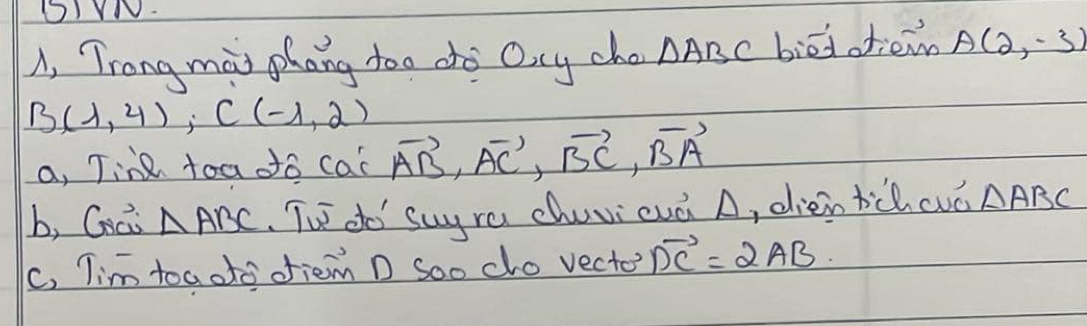 BTVN.
1, Trong mặt phẳng tọa độ Oxy cho ΔABC biết điểm A(2,-3)
B(1,4), C(-1,2)
a, Tính tọa độ các \overrightarrow{AB}, \overrightarrow{AC}, \overrightarrow{BC}, \overrightarrow{BA}
b, Giải Δ ABC. Từ đó suy ra chu vi của Δ, diện tích của ΔABC
c, Tìm tọa độ điểm D sao cho vectơ \overrightarrow{DC} = 2AB.